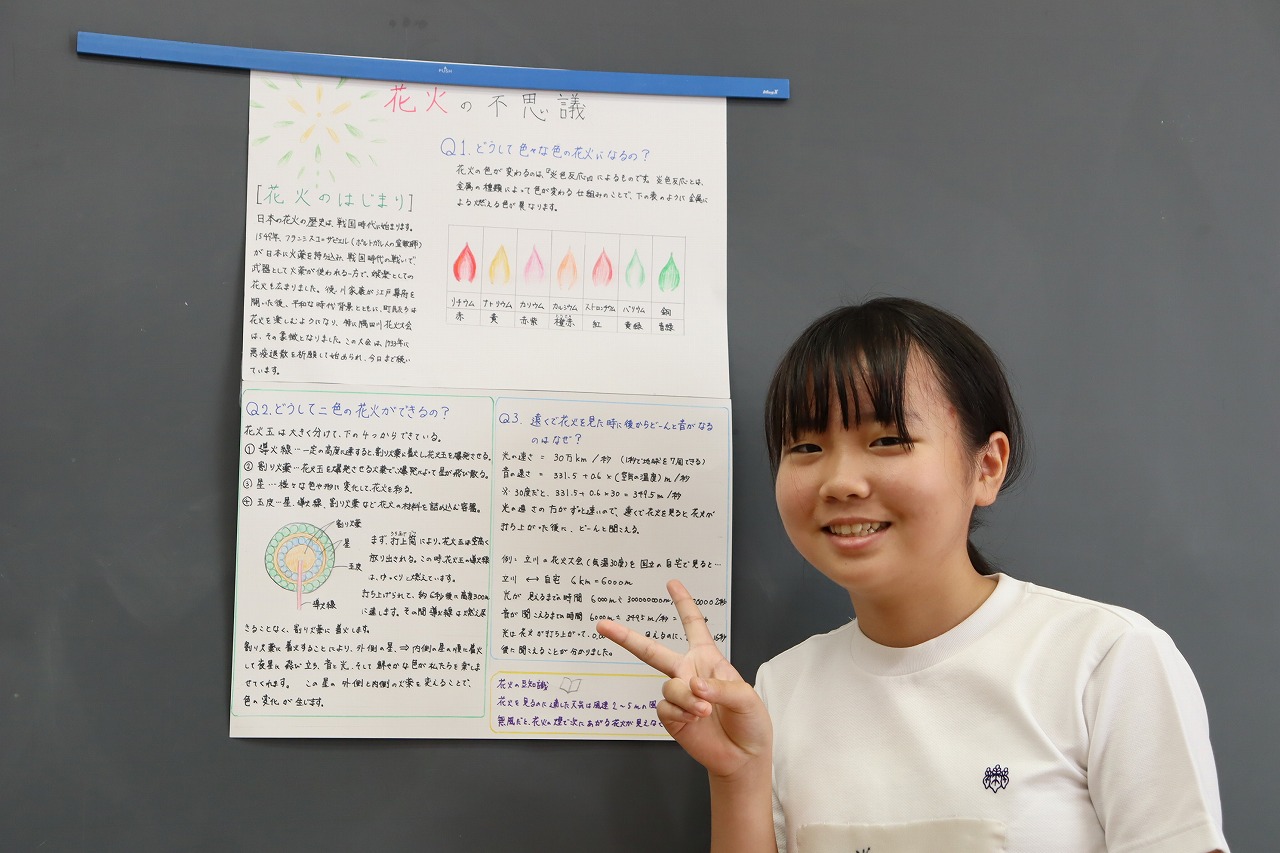 PLUS
MagX
花火の不思議
Q1. どうして色々な色の花火になるの？
花火の色が変わるのは、『炎色反応』によるものです。炎色反応とは、
金属の種類によって色が変わる仕組みのことで、下の表のように金属に
よる燃える色が異なります。
リチウム ナトリウム カリウム カルシウム ストロンチウム バリウム 銅
赤 黄 赤紫 橙赤 紅 黄緑 青緑
[花火のはじまり]
日本の花火の歴史は、戦国時代に始まります。
フランシスコ=ザビエル(ポルトガル人の宣教師)
が日本に火薬を持ち込み、戦国時代の戦いで、
武器として火薬が使われる一方で、娯楽としての
花火も広まりました。徳川家康が江戸幕府を
開いた後、平和な時代背景とともに、町民たちは
花火を楽しむようになり、特に隅田川花火大会
は、その象徴となりました。この大会は、1733年に
悪疫退散を祈願して始められ、今日まで続い
ています。
Q2. どうして二色の花火ができるの？
花火玉は大きく分けて、下の4つからできている。
① 導火線…一定の高度に達すると、割り火薬に着火し花火玉を爆発させる。
② 割り火薬…花火玉を爆発させる火薬で、爆発によって星が飛び散る。
③ 星…様々な色や形に変化して、花火を彩る。
④ 玉皮…星、導火線、割り火薬など花火の材料を詰め込む容器。
割り火薬
星
玉皮
導火線
まず、打上筒により、花火玉は空高く
放り出される。この時、花火玉の導火線
は、ゆっくりと燃えています。
打ち上げられて、約6秒後に高度300m
に達します。その間導火線は燃え尽
きることなく、割り火薬に着火します。
割り火薬に着火することにより、外側の星、⇒内側の星の順に着火
して夜空に飛び立ち、音と光、そして鮮やかな色が私たちを楽しま
せてくれます。 この星の外側と内側の火薬を変えることで、
色の変化が生じます。
Q3. 遠くで花火を見た時に後からどーんと音がなる
のはなぜ？
光の速さ = 30万km/秒 (1秒で地球を7周できる)
音の速さ = 331.5+0.6×(空気の温度)m/秒
※30度だと、331.5+0.6×30=349.5m/秒
光の速さの方がずっと速いので、遠くで花火を見ると花火が
打ち上がった後に、どーんと聞こえる。
例: 立川の花火大会(気温30度)を国立の自宅で見ると…
立川 ↔ 自宅 6km=6000m
光が見えるまでの時間 6,000m÷300000000m/
音が聞こえるまでの時間 6000m÷349.5m/秒=
光は花火が打ち上がって、0.0 見えるのに、
後に聞こえることが分かりました。
花火の豆知識
花火を見るのに適した天気は風速2〜5mの風
無風だと、花火の煙で次にあがる花火が見えな